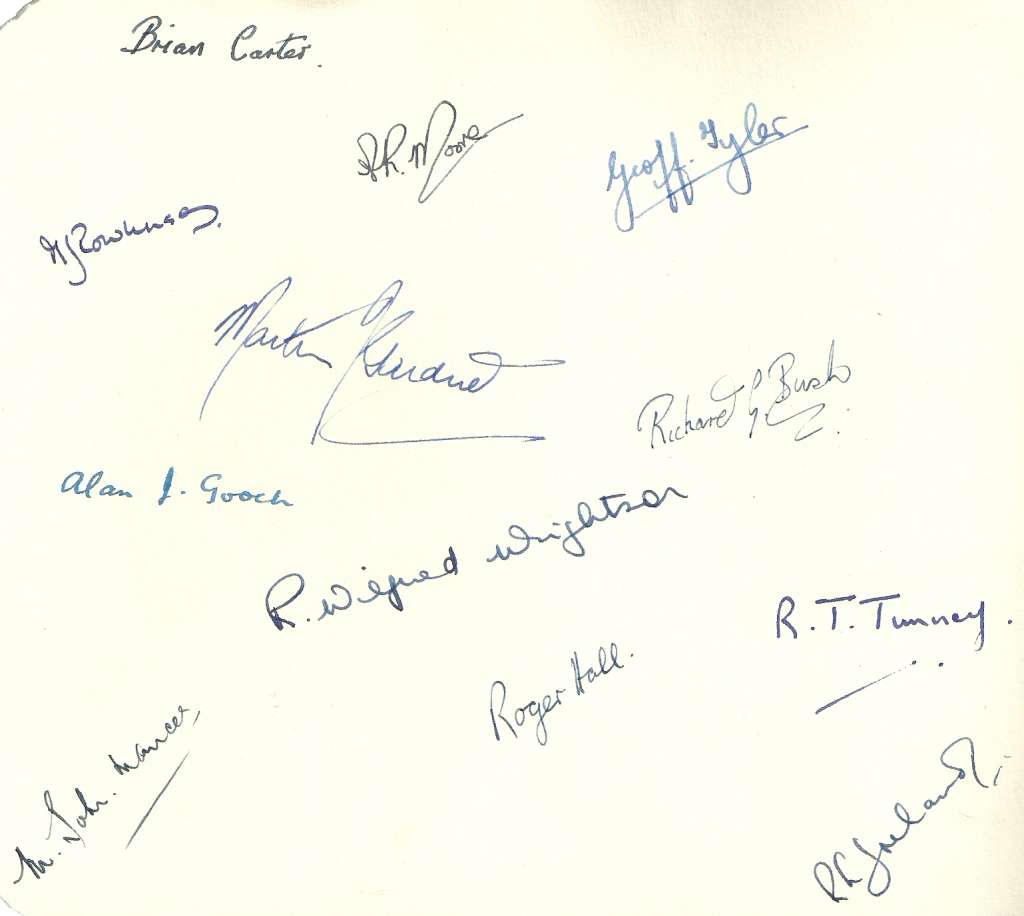 Brian Carter.
R. Moore
Geoff. Tyler
Martin
Richard G Bush
Alan J. Gooch
R. Wilfred Wrightson
R. T. Tunney.
Roger Hall.
M. John.
Ireland